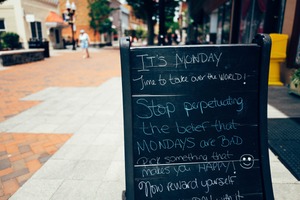 IT'S MONDAY
Time to take over the WORLD!
Stop perpetuating
the belief that
MONDAYS are BAD
PICK something that
makes you HAPPY!
Now reward yourself
DAY with it